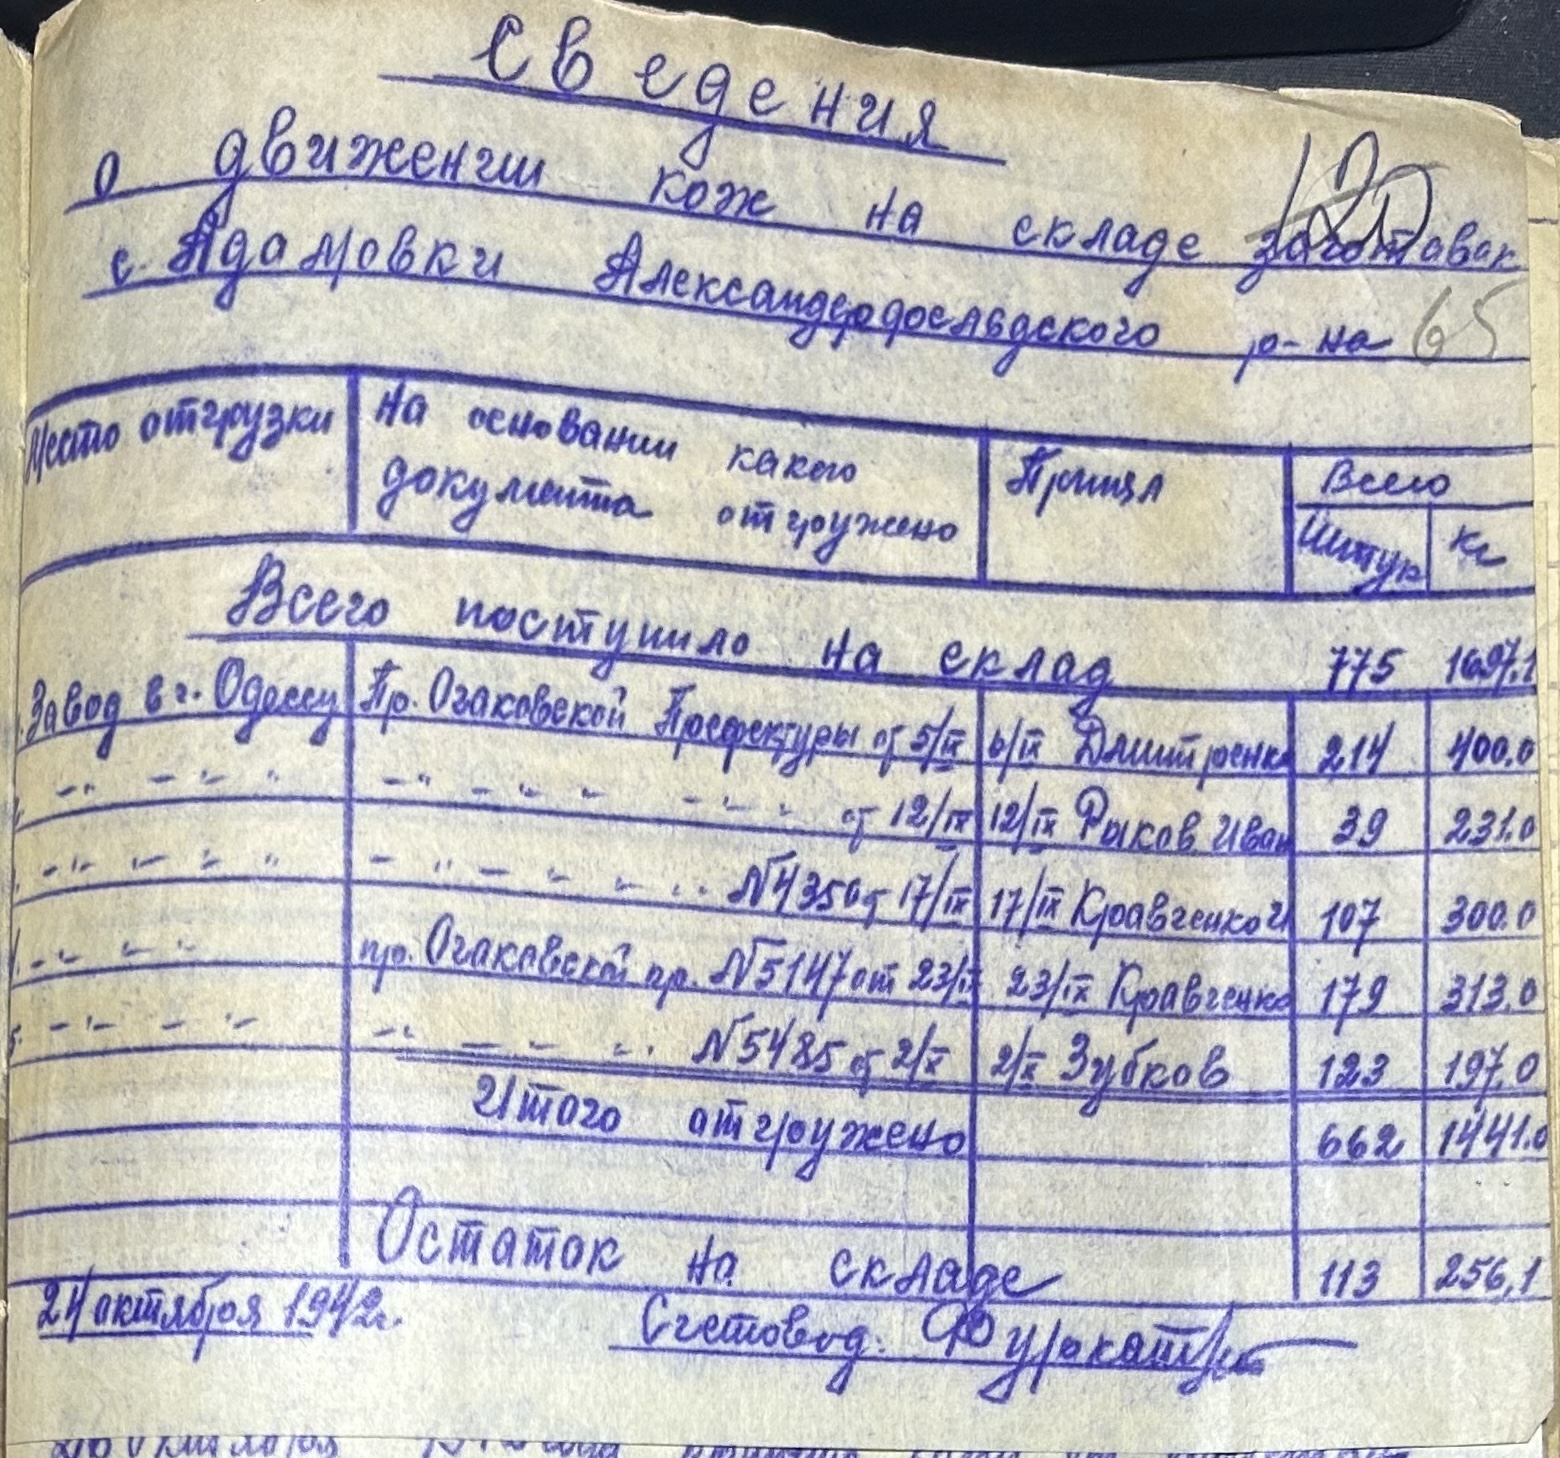 Сведения
120
о движении кож на складе
с. Адамовки Александердоевьдского р-на 65
Место отгрузки | На основании какого документа отгружено | Принял | Всего
Штук | Кг
Всего поступило на склад 775 1697.1
Завод в г. Одессу | Пр. Очаковской Префектуры от 5/IX | 6/IX Дмитренко | 214 | 400.0
-"- -"- " | -"- - " - " от 12/IX | 12/IX Рыков Иван | 39 | 231.0
-"- -"- " | - " - - " N4350 от 17/IX | 17/IX Кравченко И | 107 | 300.0
-"- -"- | пр. Очаковской пр. N5147 от 23/IX | 23/IX Кравченко | 179 | 313.0
5. -"- - " - | -"- - " - " N5485 от 2/X | 2/X Зубков | 123 | 197.0
Итого отгружено 662 1441.0
Остаток на складе 113 256,1
24 октября 1942г. Счетовод: